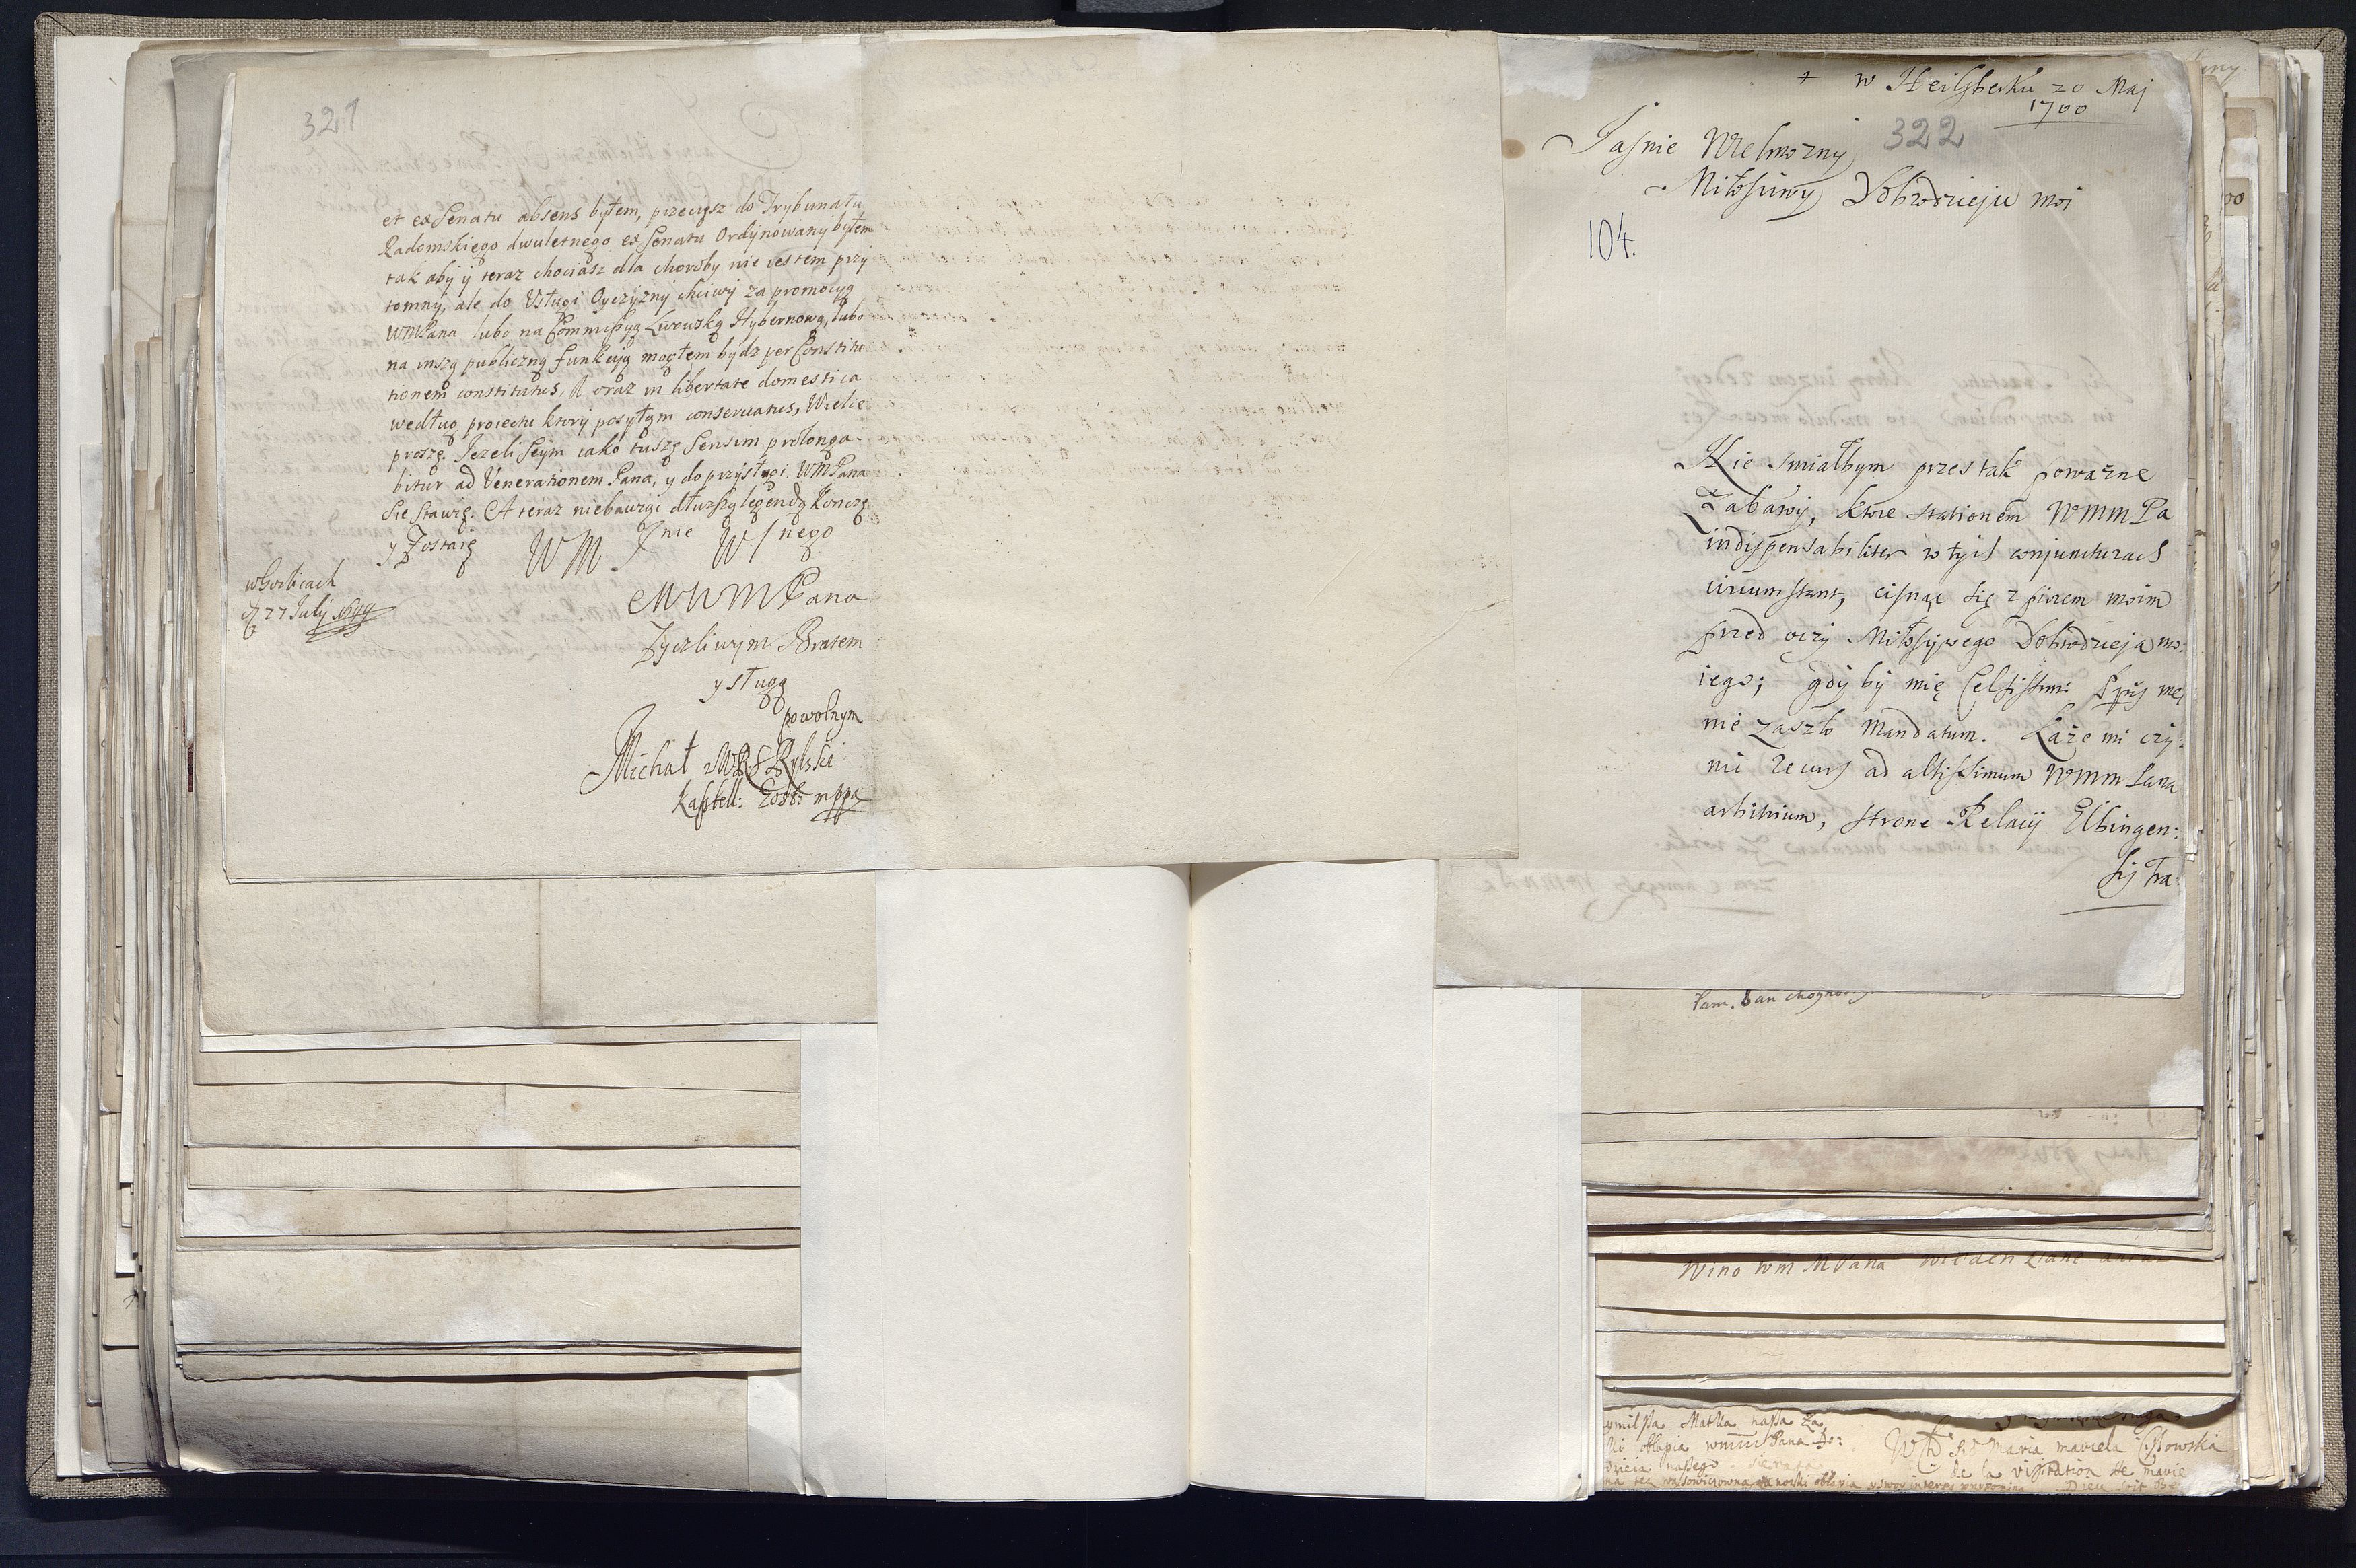 321
et ex Senatu absens byłem, przecięsz do Trybunału
Radomskiego dwuletnego ex Senatu Ordynowany byłem
tak aby y teraz chociasz dla choroby nie iestem przy
tomny, ale do Usługi Oyczyzny chciwy za promocyą
WMPana lubo na Commissyą Lwowską Hybernową, lubo
na inszą publiczną funkcyją mogłem bydz per Constitu
tionem constitutus, A oraz in libertate domestica
według proiectu ktory posyłąm conservatus, Wielce
proszę. Jezeli Seym iako tuszę sensim prolonga-
bitur ad Venerationem Pana, y do przysługi WMPana
sie stawię. A teraz niebawiąc dłuzszą legendą Konczę
y Zostaię WM Jnie W/nego
w Gorlicach
d 27 July 1699
MWMPana
Zyczliwym Bratem
y sługą
powolnym
Michał Rylski
Kasztell: mppa
+ w Heilsberku 20 Maj
1700
322
Jasnie Wielmozny
Miłosciwy Dobrodzieju moi
104.
Nie smiałbym przes tak powazne
Zabawy, ktore stationem WMM Pa
indispensabiliter w tych conjuncturach
circumstant, cisnąc się z piorem moim
przed oczy Miłosciwego Dobrodzieja mo:
iego; gdy by mię Celsissimi mei
nie zaszło mandatum. Każe mi czy:
nić recurs ad altissimum WMM Pana
arbitrium, strone Relacij Elbingen:
sis tra:
Wino wm MPana
Matka nasza Za
oblapia wmm Pana Do:
naszego
Maria
de la visitation